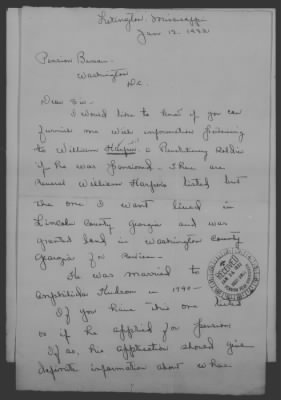 Lexington, Mississippi
Jan 12, 1932
Pension Bureau
Washington
D.C.
Dear Sir -
I would like to know if you can
furnish me with information pertaining
to William Harper a Revolutionary Soldier
if he was pensioned. There are
several William Harpers listed but
the one I want lived in
Lincoln County Georgia and was
granted land in Washington County
Georgia for service -
He was married to
Hudson in 1790 -
If you have this one listed
or if he applied for pension
If so, his application should give
definite information about where